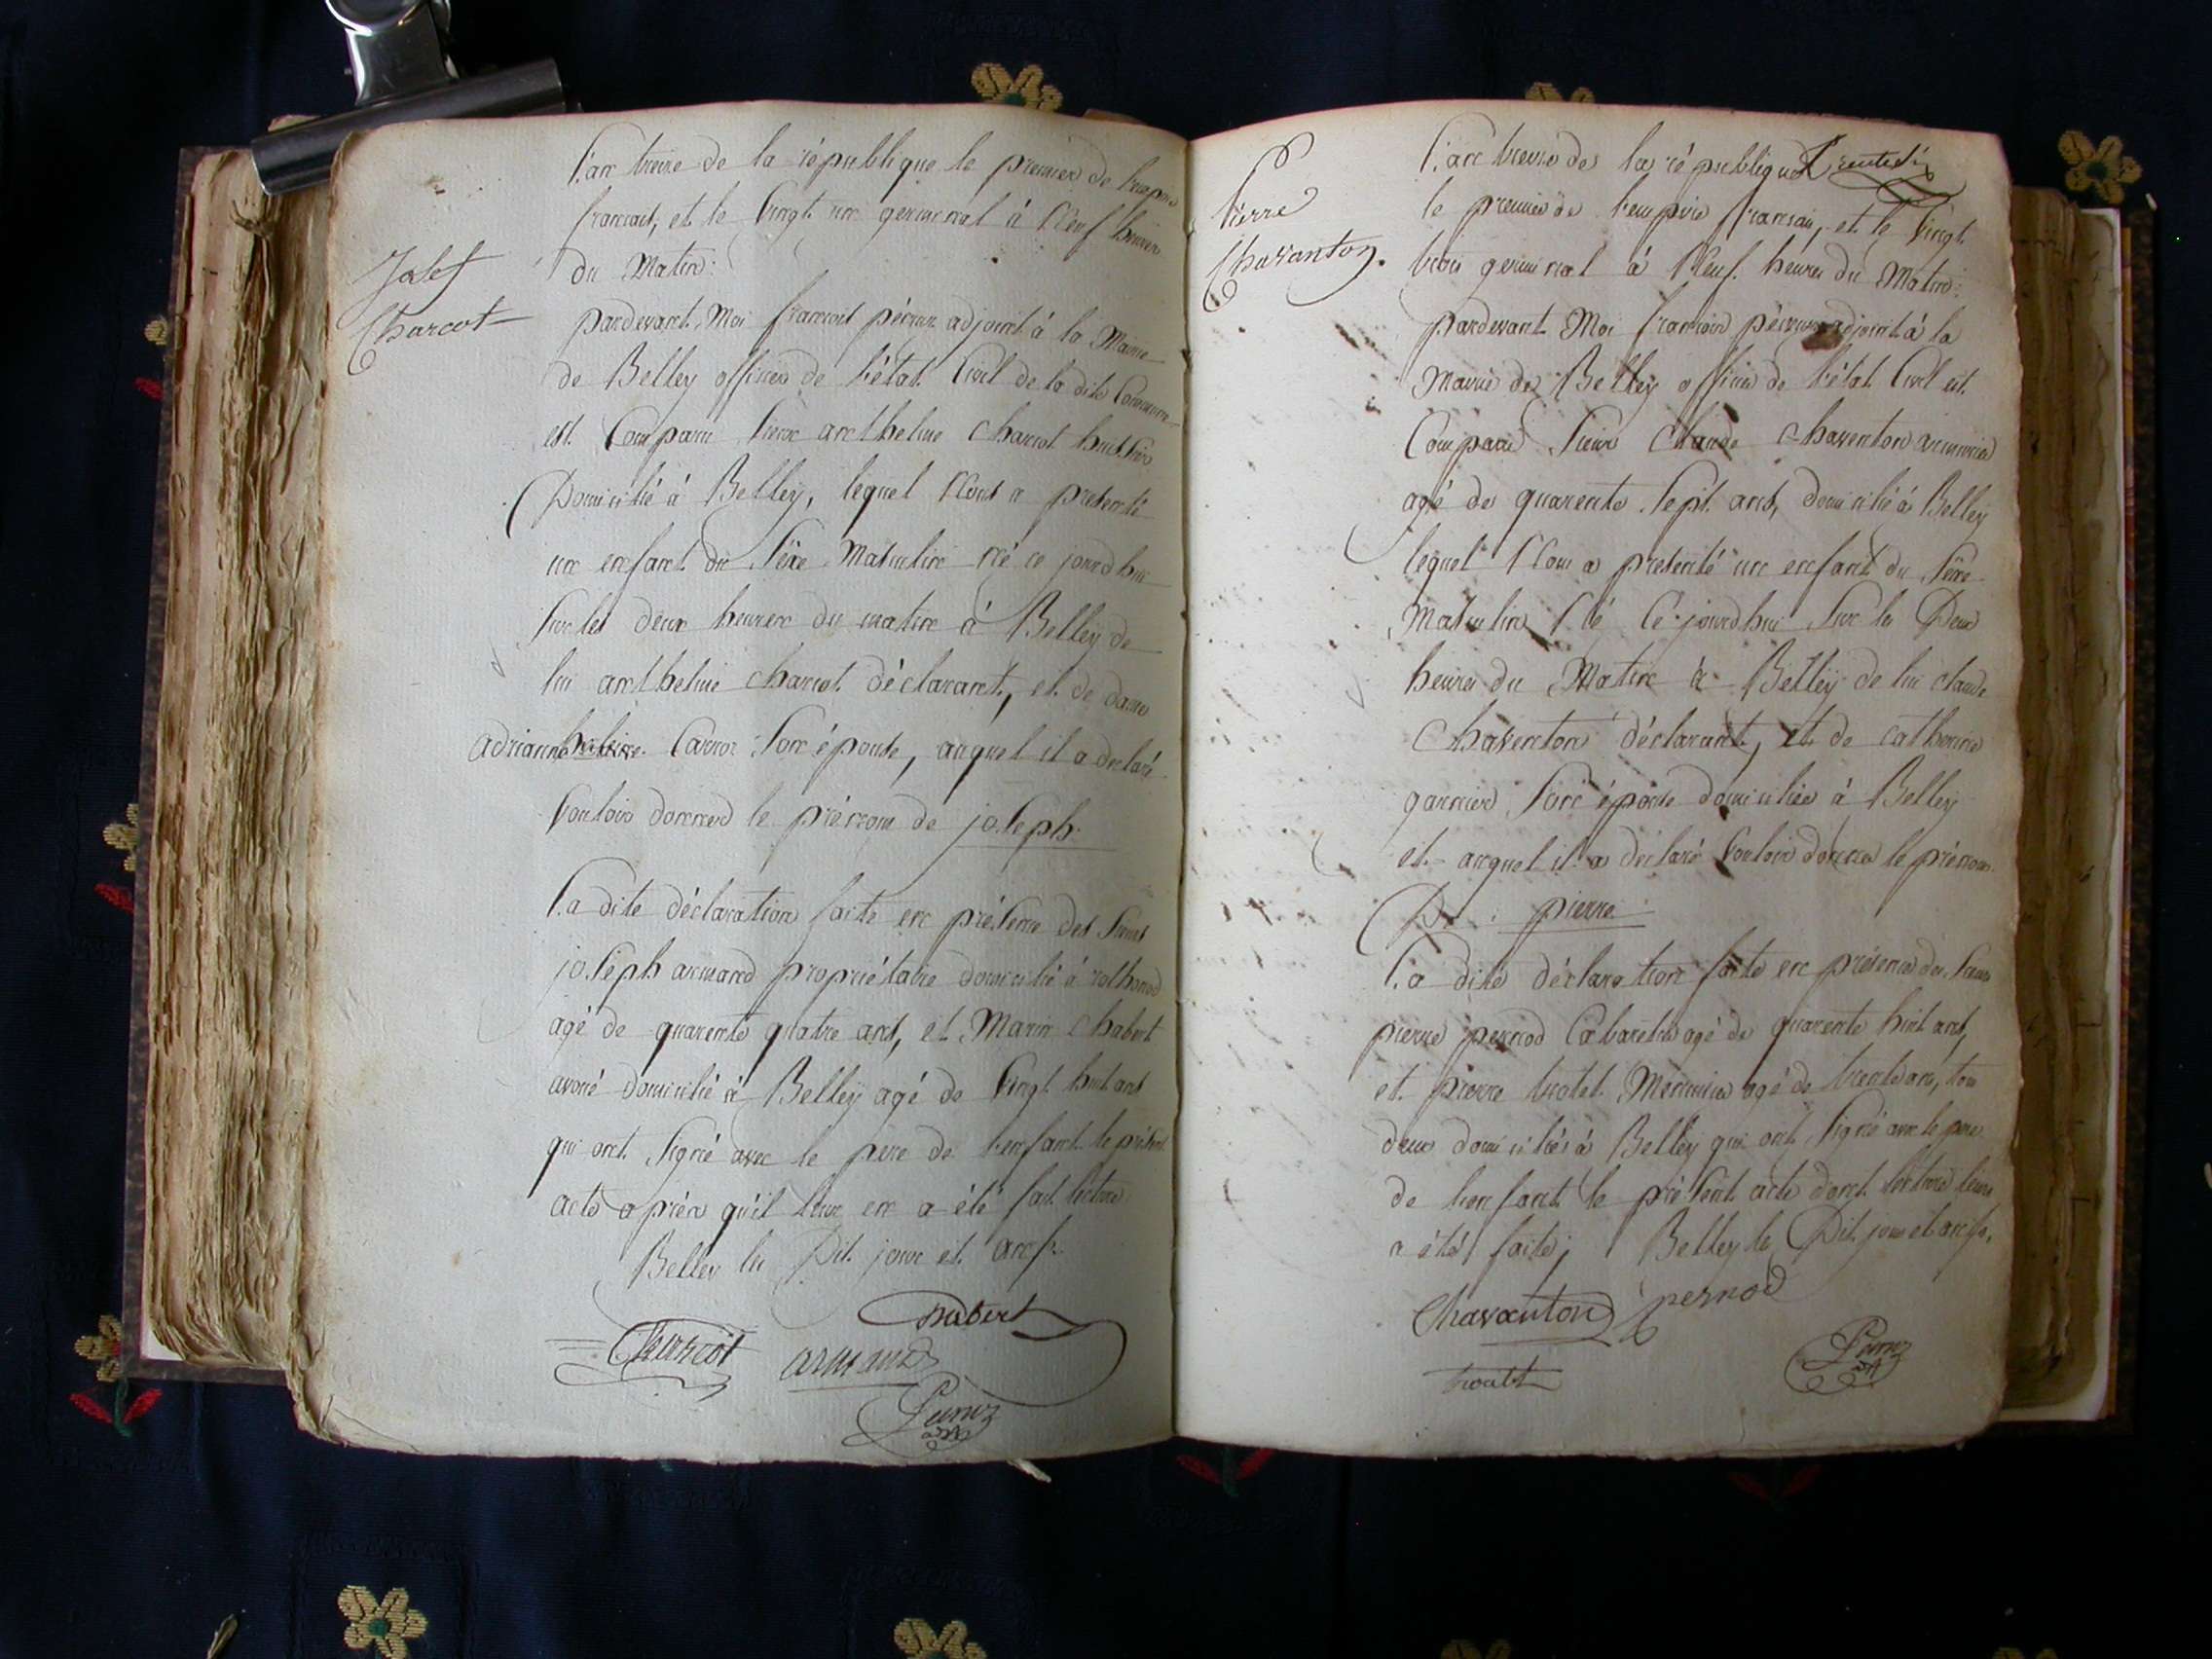 Josef
Charcot
L'an treize de la république le premier de l'empire
francais, et le vingt un germinal à neuf heures
du Matin:
pardevant Moi francois adjoint à la Mairie
de Belley officier de l'état Civil de la dite Commune
est Comparu Sieur anthelme charcot huissier
Domicilié à Belley, lequel Nous a présenté
un enfant du Séxe Masculin né ce jourdhui
Sur les deux heures du matin à Belley de
lui anthelme charcot déclarant, et de dame
adrianne Son épouse, auquel il a déclaré
Vouloir donner le prénom de joseph.
La dite déclaration faite en présence des Sieurs
joseph armand propriétaire domicilié à
agé de quarente quatre ans, et Marin Chabert
avoué domicilié à Belleÿ agé de Vingt huit ans
qui ont Signé avec le pere de l'enfant le présent
acte après qu'il leur en a été fait lecture
Belley les Dit jour et an
Chabert
Charcot armand
Pierre
Chavanton.
L'an treize de la république
le premier de l'empire francais, et le Vingt
trois germinal à Neuf heures du Matin:
pardevant Moi francois adjoint à la
Mairie de Belleÿ officier de l'état Civil est
Comparu Sieur Claude Chaventon
agé de quarente Sept ans, domicilié à Belley
lequel Nous a présenté un enfant du Séxe
Masculin Né Ce jourdhui Sur les Deux
heures du Matin à Belleÿ de lui claude
Chaventon déclarant, et de catherine
garnier Son épouse domiciliée à Belley
et auquel il a déclaré Vouloir donner le prénom
De : pierre
La dite déclaration faite en présence des Sieurs
pierre pernod Cabaretier agé de quarente huit ans,
et pierre trolet Menuisier agé de trente ans, tous
deux domiciliés à Belley qui ont Signé avec le pere
de l'enfant le présent acte dont lecture leurs
a été faite; Belley les Dit jour et an
Chavanton pernod